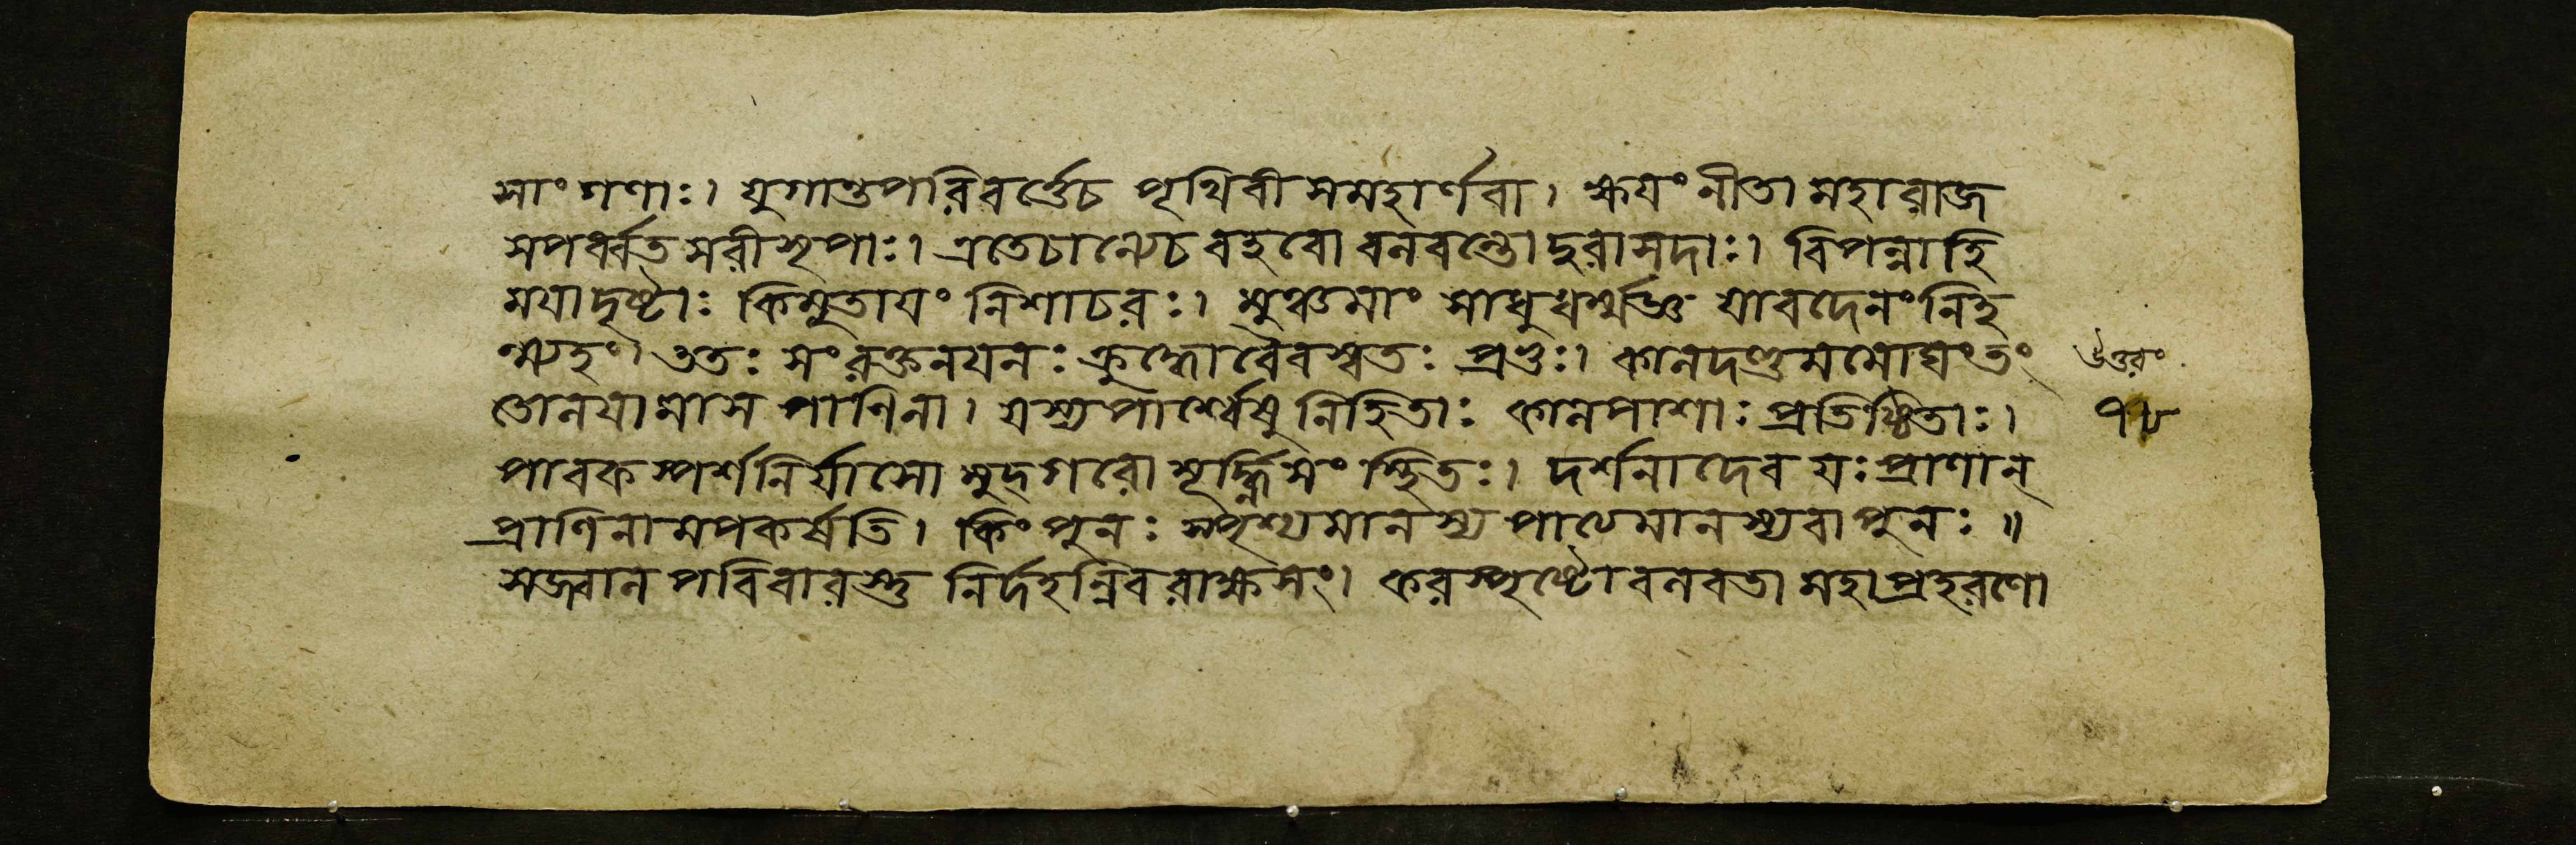 সাং গণাঃ। যুগান্তপরিবর্ত্তেচ পৃথিবী সমহার্ণবা। ক্ষযং নীতা মহারাজ
সপর্ব্বত সরীসৃপাঃ। এতেচান্যেচ বহবো বলবন্তো দুরাসদাঃ। বিপন্নাহি
মযাদৃষ্টাঃ কিমুতাযং নিশাচরঃ। মুঞ্চমাং সাধুধর্ম্মজ্ঞ যাবদেনং নিহ
ন্ম্যহং। ততঃ সংরক্তনযনঃ ক্রুদ্ধোবৈবস্বতঃ প্রভুঃ। কালদণ্ডমমোঘং তং
তোলযামাস পাণিনা। যস্য পার্শ্বেষু নিহিতাঃ কালপাশাঃ প্রতিষ্ঠিতাঃ।
পাবকস্পর্শনির্যাসো মুদ্গরো মূর্দ্ধ্নি সংস্থিতঃ। দর্শনাদেব যঃ প্রাণান্
প্রাণিনামপকর্ষতি। কিং পুনঃ স্পৃশ্যমানস্য পাত্যমানস্যবা পুনঃ॥
সজ্বাল পরিবারস্তু নির্দহন্নিব রাক্ষসং। করস্পৃষ্টোবলবতা মহাপ্রহরণো
উত্তরং